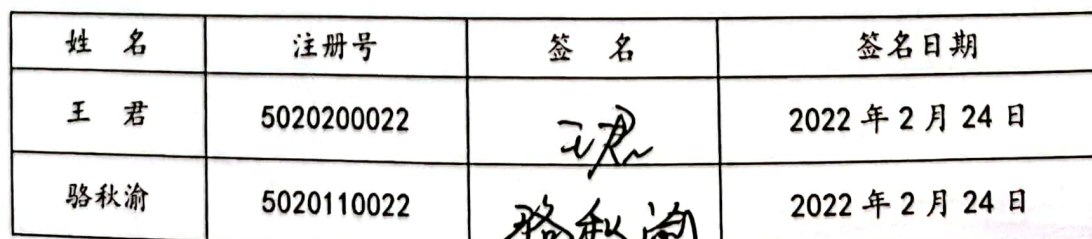 姓 名 注册号 签 名 签名日期
王 君 5020200022 王君 2022 年 2 月 24 日
骆秋渝 5020110022 骆秋渝 2022 年 2 月 24 日